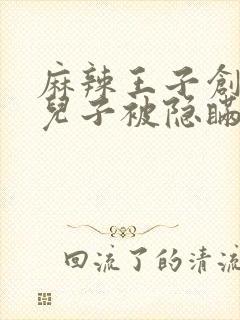 麻辣王子創
兒子被隐瞒
回流了的清流